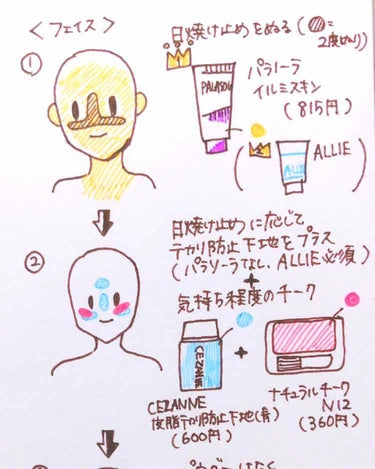 ＜フェイス＞
① 日焼け止めをぬる(●=2度ぬり)
1
PALASOLA
パラソーラ
イルミスキン
(815円)
(2 ALLIE ALLIE)
② 日焼け止めに応じて
テカリ防止下地をプラス
(パラソーラなし、ALLIE必須)
+
気持ち程度のチーク
CEZANNE
+
CEZANNE
皮脂テカリ防止下地(青)
(600円)
ナチュラルチーク
N12
(360円)